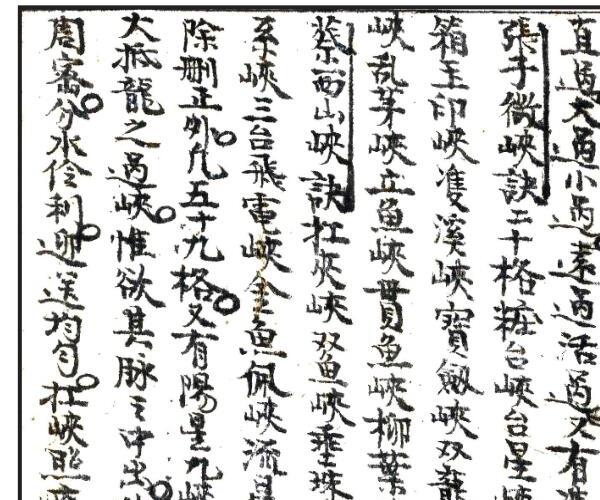 直過大過小過遠過活過又有
張子微峽訣二十格粧台峽台星
箱玉印峽隻溪峽寶劍峽双龍
峽乱茅峽立魚峽貫魚峽柳葉
蔡西山峽訣扛夾峽双魚峽垂珠
系峽三台飛電峽金魚佩峽流星
除刪正外凡五十九格又有陽星九峽
大抵龍之過峽惟欲其脉之中出
周密分水伶利迎送均勻扛峽照